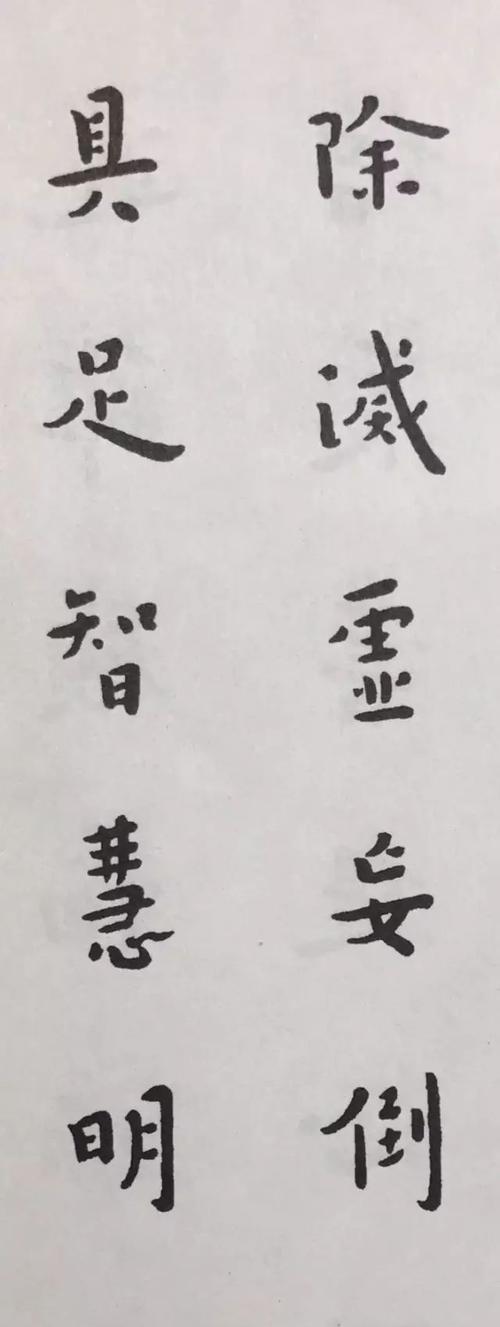 除滅虛妄倒
具足智慧明